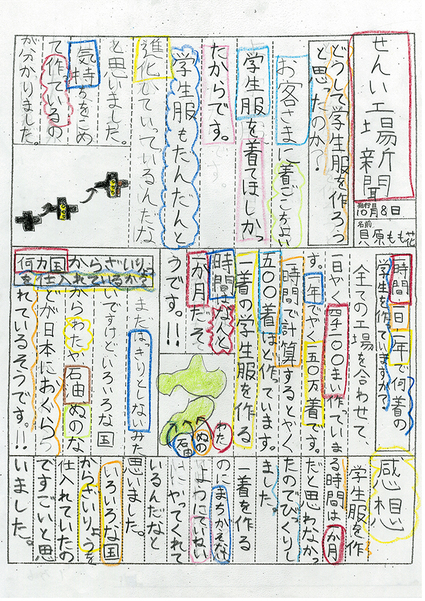 せんい工場新聞
発行
10月8日
名前
貝原もも花
どうして学生服を作ろう
と思ったのか?
お客さまに着ごこちよい
学生服を着てほしかっ
たからです。
学生服もだんだんと
進化していっているんだな
と思いました。
気持ちをこめ
て作っているの
が分かりました。
時間一日一年で何着の
学生を作っていますか?
全ての工場を合わせて、
一日やく四千二〇〇まい作っていま
す。一年でやく一五〇万着です。
時間で計算するとやく
五〇〇着ほど作っています。
一着の学生服を作る
時間はなんと
か月だそ
うです。!!
わた
ぬの
石油
何カ国からざいりょうを
仕入れているか?
まだはっきりとしない
ですけどいろいろな国
からわたや石油ぬのな
どが日本におくら
れているそうです。!!
感想
学生服を作
る時間は一か月
だと思わなかっ
たのでびっくりし
ました。
一着を作る
のにまちがえない
ようにていねい
にやってくれて
いるんだなと
思いました。
いろいろな国
からざいりょうを
仕入れていたの
ですごいと思
いました。